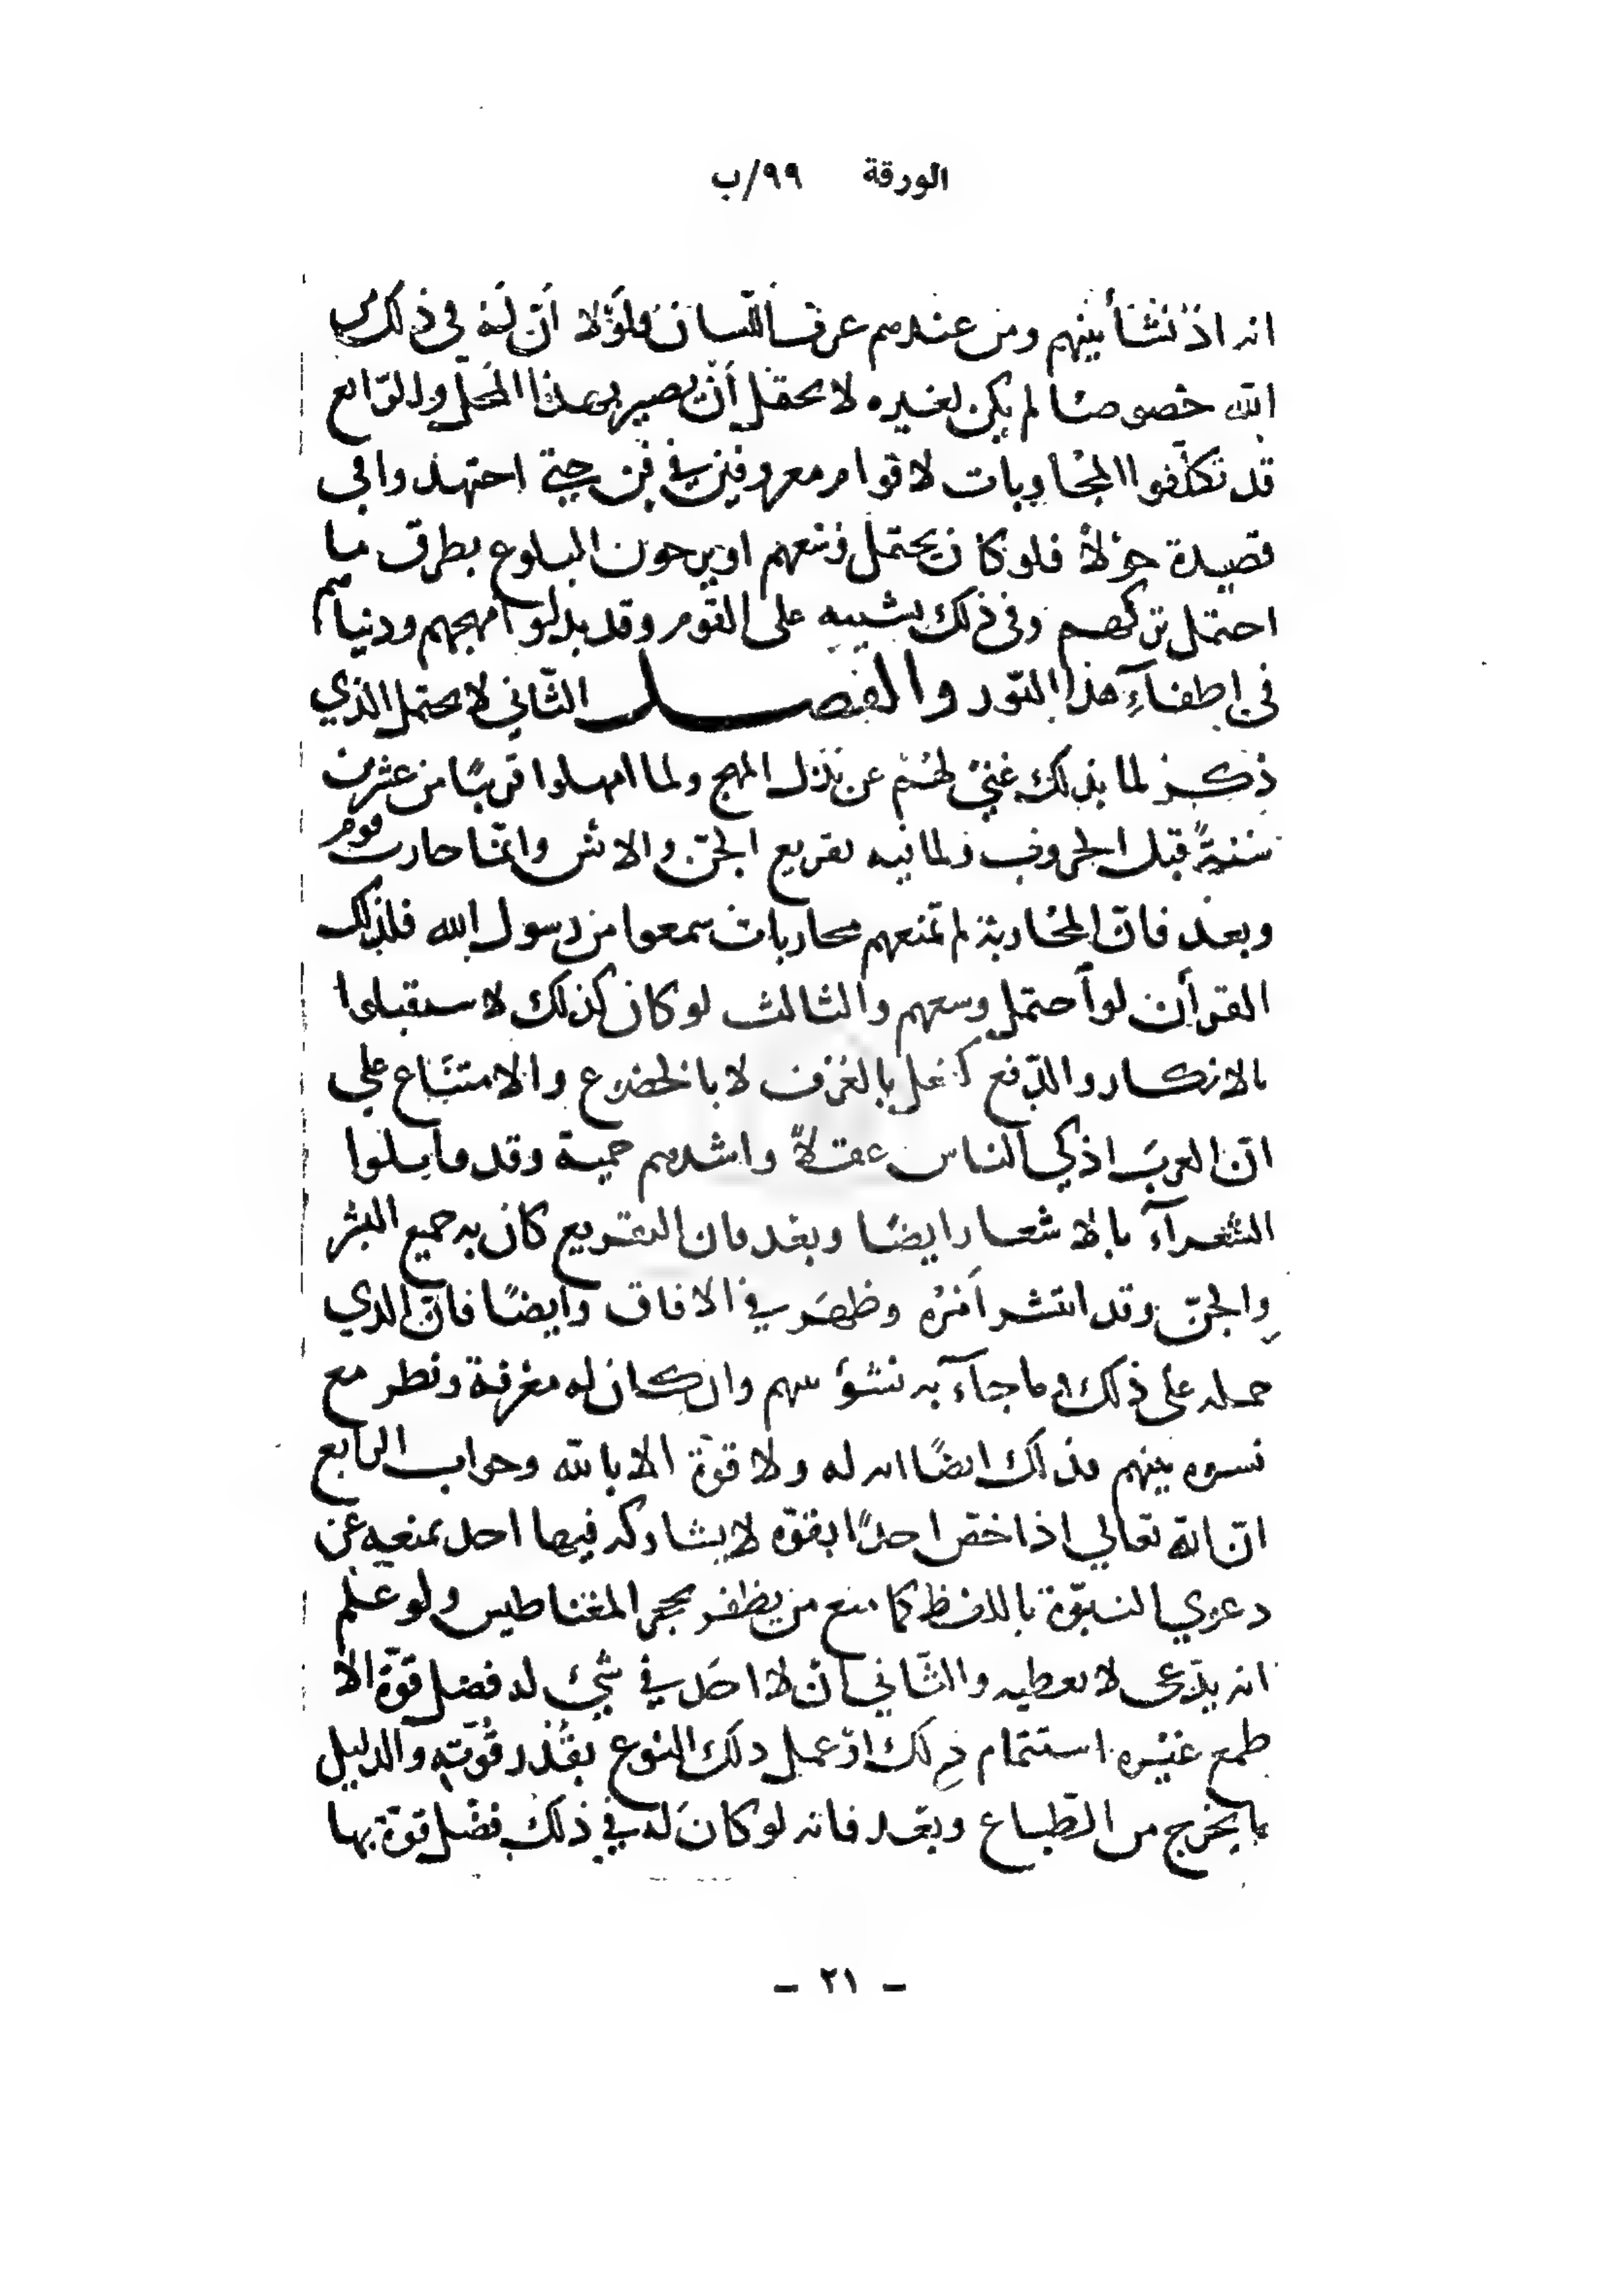 الورقة ٩٩/ب
انه اذ نشأ بينهم ومن عندهم عرف اللسان فلولا أن له في ذلك من
الله خصوصًا لم يكن لغيره لا يحتمل أن يصير بهذا المحل والرابع
قد تكلفوا المجاوبات لاقوام معروفين في فن حتى اجتهدوا في
قصيدة حولًا فلو كان يحتمل وسعهم او يرجون البلوغ بطرق ما
احتمل تركهم وفي ذلك تشبيه على القوم وقد بذلوا مهجهم ودنياهم
في إطفاء هذا النور والفصل الثاني لا يحتمل الذي
ذكر لما بذلك غنى لهم عن بذل المهج ولما امهلوا قريبًا من عشرين
سنةً قبل الحروب ولما فيه تقريع الجن والانس وانما حارب قوم
وبعد فان المحاربة لم تمنعهم محاربات سمعوا من رسول الله فلذلك
القرآن لو احتمل وسعهم والثالث لو كان كذلك لاستقبلوا
بالانكار والدفع كفعل بالغزف لا بالخضوع والامتناع على
ان العرب اذكى الناس عقلاً واشدهم حمية وقد قابلوا
الشعراء بالاشعار ايضًا وبعد فان التقريع كان به جميع البشر
والجن وقد انتشر أمره وظهر في الافاق وايضًا فان الذي
حمله على ذلك وما جاء به نشؤ منهم وان كان له معرفة ونظر مع
نشوه بينهم فذلك ايضًا انه له ولا قوة الا بالله وجواب الرابع
ان الله تعالى اذا خص احدًا بقوة لا يشاركه فيها احد يمنعه عن
دعوى النبوة باللفظ كما منع من يظفر بحجر المغناطيس ولو علم
انه يدعى لا يعطيه والثاني أن لا احد في شيء له فضل قوة الا
طمع غيره استتمام ذلك او عمل ذلك النوع بقدر قوته والدليل
ما يخرج من الطباع وبعد فانه لو كان له في ذلك فضل قوة بها
– ٢١ –